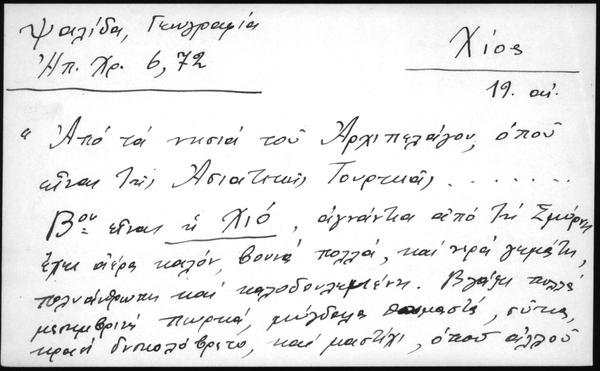 Ψαλίδα, Γεωγραφία
Ἠπ. Χρ. 6, 72
Χίος
19. αἰ.
" Ἀπό τά νησιά τοῦ Ἀρχιπελάγου, ὁποῦ
εἶναι τῆς Ἀσιατικῆς Τουρκιᾶς . . . . . . .
Βου εἶναι ἡ Χιό, ἀγνάντια ἀπό τή Σμύρνη
ἔχει ἀέρα καλόν, βουνά πολλά, καί νερά γεμάτη,
πολυάνθρωπη καί καλοδουλεμένη. Βγάζει πολλά
μεσημβρινά πωρικά, μύγδαλα θαυμαστά, σῦκα,
κρασί δυσκολόβρετο, καί μαστίχι, ὁποῦ ἀλλοῦ